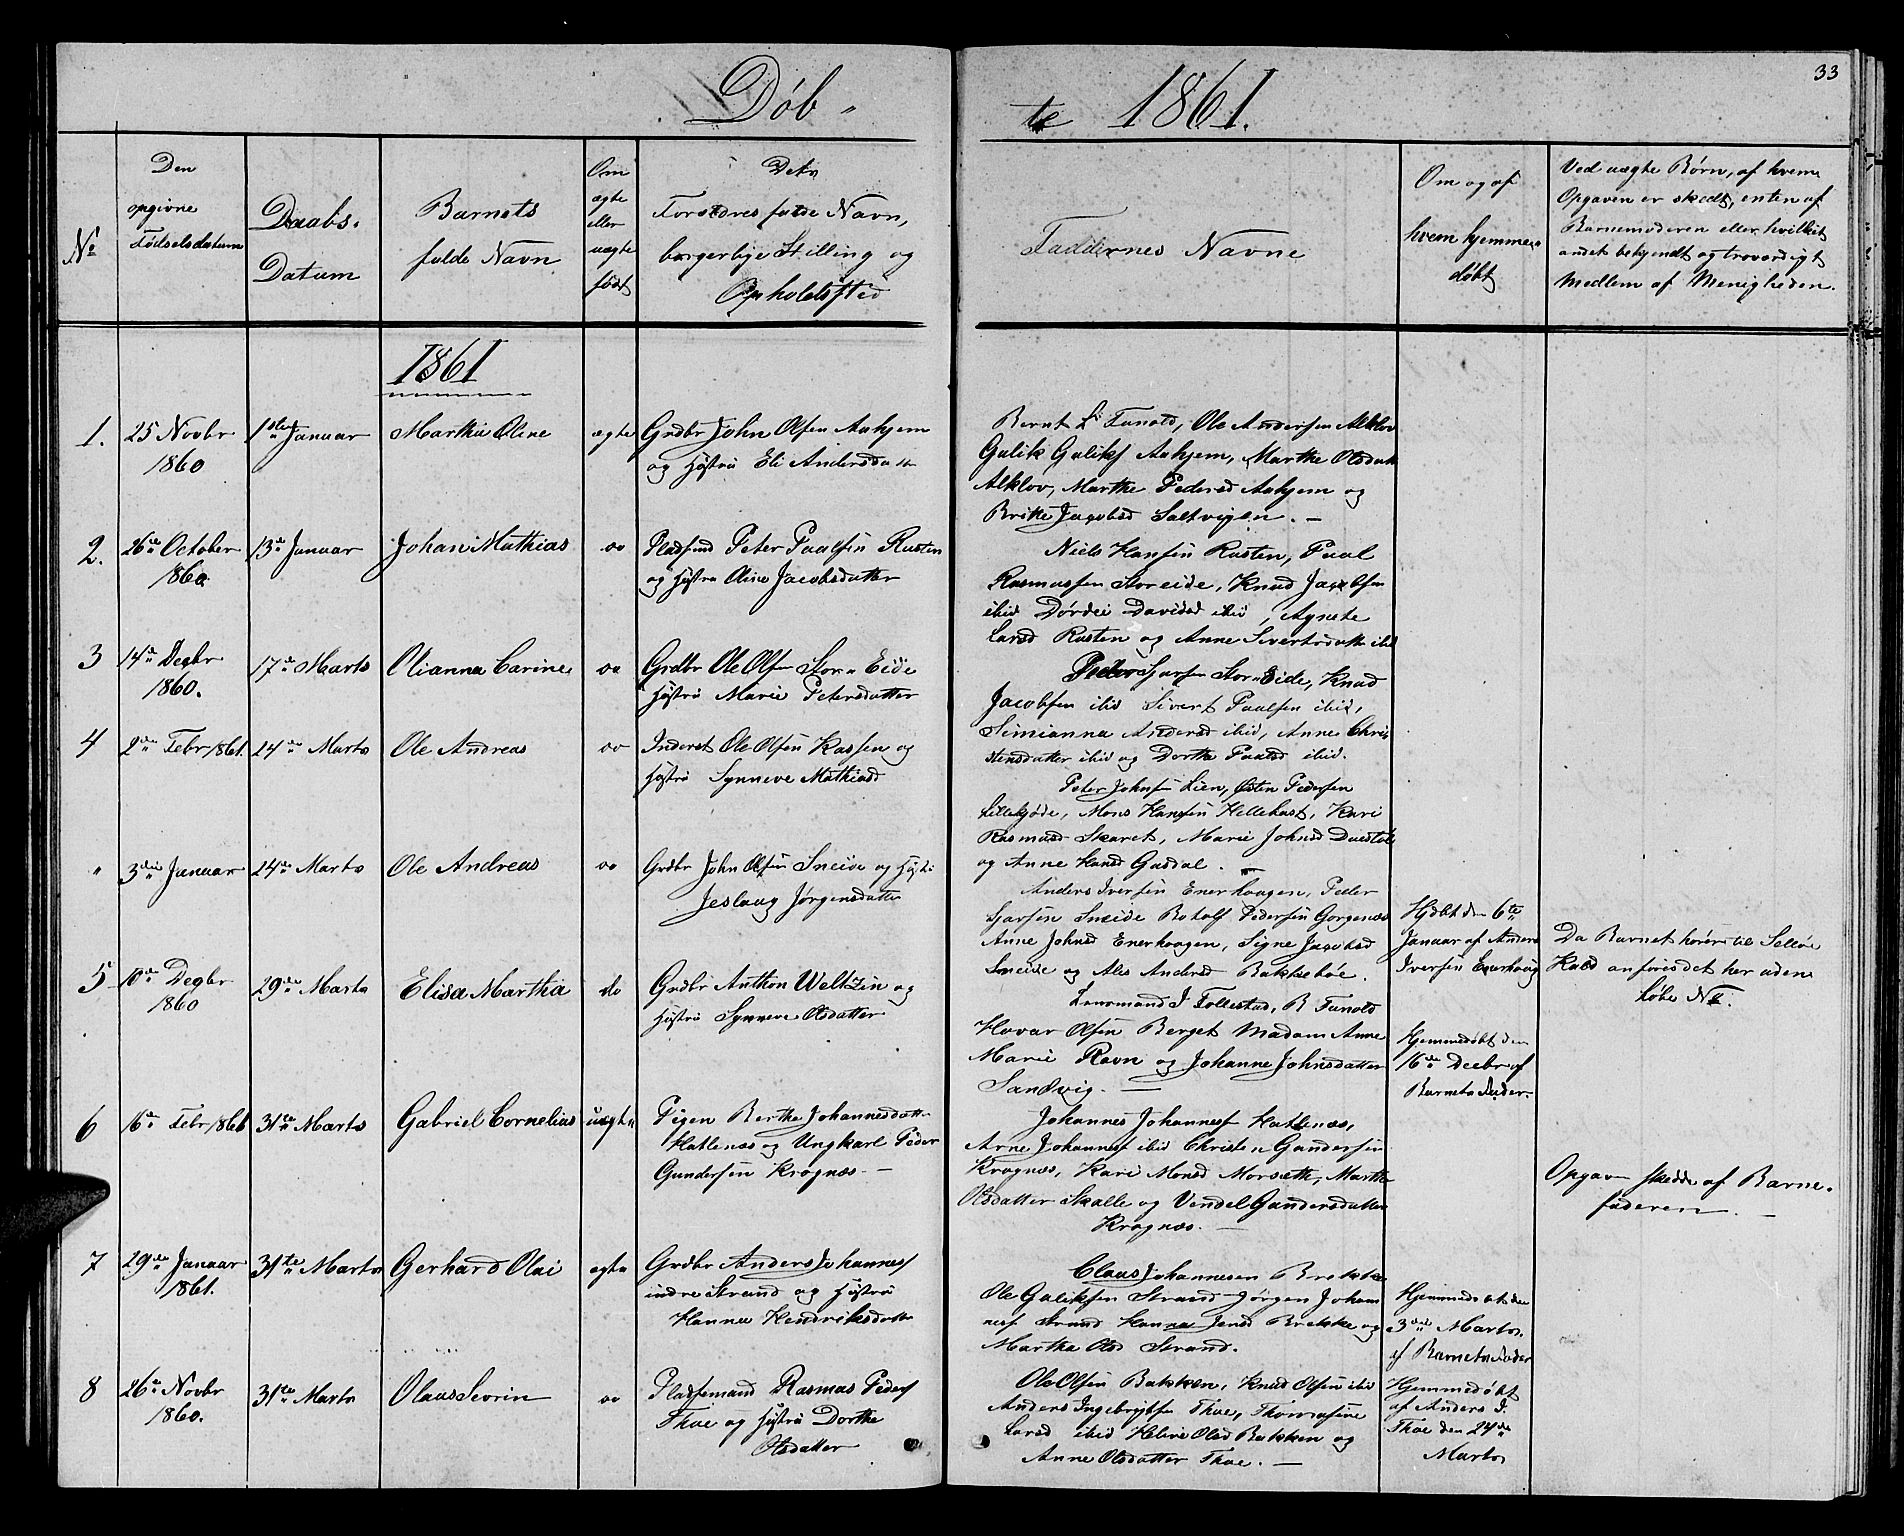 33
Døb-
te 1861.
No
Den
opgivne
Fødselsdatum
Daabs-
Datum
Barnets
fulde Navn
Om
ægte
eller
uægte
født
Forældres fulde Navn,
borgerlige Stilling og
Opholdssted
Faddernes Navne
Om og af
hvem hjemme-
døbt
Ved uægte Børn, af hvem
Opgaven er skedt, enten af
Barnemoderen eller hvilket
andet bekjendt og troværdigt
Medlem af Menigheden.
1861
1.
25 Novbr
1860
1ste Januar
Martha Oline
ægte
Grdbr John Olsen Aahjem
og Hstro Eli Andersdatter
Bernt L. Funold, Ole Andersen Alklov
Gulik Guliks Aahjem, Marthe Olsdatt
Alklov, Marthe Pedersd Aahjem og
Britte Jacobsd Saltvigen. —
2.
26de October
1860.
13de Januar
Johan Mathias
do
Pladsmd Peter Paalsen Rusten
og Hstro Oline Jacobsdatter
Niels Hansen Rusten, Paal
Rasmussen Storeide, Knud Jacobsen
ibid Dordei Davidsd ibid, Agnete
Larsd Rusten og Anne Sivertsdatter ibid
3
14de Decbr
1860.
17de Marts
Olianna Carine
do
Grdbr Ole Olsen Stor-Eide
Hstro Marie Petersdatter
Peder Sjursen Stor-Eide, Knud
Jacobsen ibid Sivert Paalsen ibid,
Simianna Andersd ibid, Anne Chri-
stensdatter ibid og Dorthe Paalsd ibid.
4
2den Febr 1861.
24de Marts
Ole Andreas
do
Inderst Ole Olsen Kassen og
Hstro Synneve Mathiasd
Peter Johns Lien, Østen Pedersen
Lillebøde, Mons Hansen Hellehust, Kari
Rasmusd Skaret, Marie Johnsd
og Anne Hansd Gusdal.
"
3die Januar
24de Marts
Ole Andreas
do
Grdbr John Olsen Sneide og Hstr:
Jeslaug Jørgensdatter
Anders Iversen Enerhaugen, Peder
Sjursen Sneide Botolf Pedersen Gorgenæs
Anne Johnsd Enerhaugen, Signe Jacobsd
Sneide og Ales Andersd Bakkebøe.
Hjdbt den 6te
Januar af Anders
Iversen Enerhaug
Da Barnet hører til Selløe
Kald anføres det her uden
løbe No.
5
10de Decbr
1860
29de Marts
Elisa Martha
do
Grdbr Anthon Weltzin og
Hstro Synneve Olsdatter
Lensmand J. Follestad, B. Funold
Havar Olsen Berget Madam Anne
Marie Ravn og Johanne Johnsdatter
Sandvig. —
Hjemmedøbt den
16de Decbr af
Barnets Fader.
6
16de Febr 1861
31te Marts
Gabriel Cornelius
uægte
Pigen Berthe Johannesdatt
Hatlenæs og Ungkarl Peder
Gundersen Krognæs. —
Johannes Johanness Hatlenæs,
Arne Johanness ibid Christen Gundersen
Krognæs, Kari Monsd Morsæth, Marthe
Olsdatter Skalle og Vendel Gundersdatter
Krognæs. —
Opgav skedde af Barne-
faderen. —
7
29de Januar
1861.
31te Marts
Gerhard Olai
ægte
Grdbr Anders Johanness
indre Strand og Hstro
Hanna Hendriksdatter
Claus Johannesen Brekke
Ole Guliksen Strand Jørgen Johan-
ness Strand Hanna Jensd Brekke og
Martha Olsd Strand.
Hjemmedøbt den
3die Marts.
af Barnets Fader
8
26de Novbr
1860.
31te Marts
Olaus Sevrin
do
Pladsemand Rasmus Peders
Thue og Hstro Dorthe
Olsdatter
Ole Olsen Bakken, Knud Olsen ibid
Anders Ingebrigts Thue, Thomasine
Larsd ibid Helene Olsd Bakken og
Anne Olsdatter Thue. —
Hjemmedøbt
af Anders I.
Thue den 24de
Marts